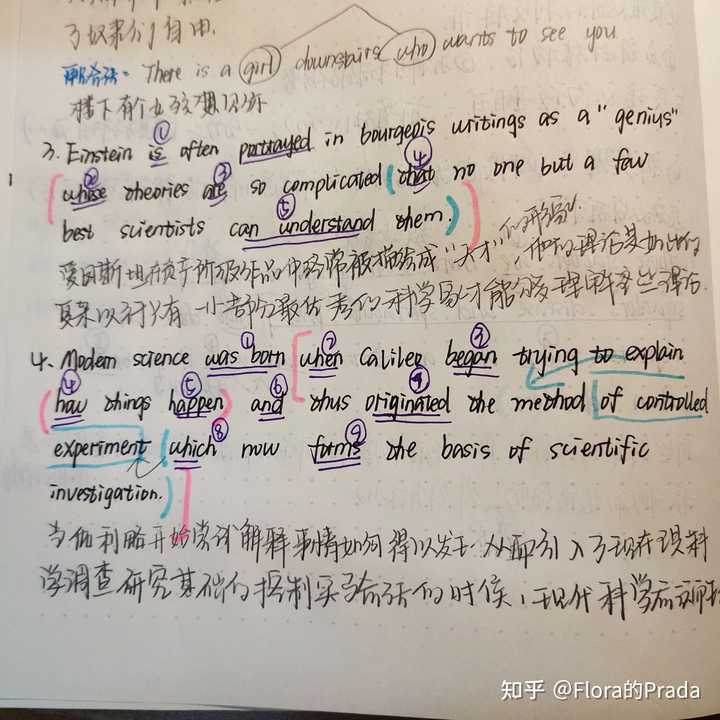 了奴隶们自由.
There is a girl downstairs who wants to see you
楼下有个女孩想见你
①
3. Einstein is often portrayed in bourgeois writings as a "genius"
② ③ ④
whose theories are so complicated (that no one but a few
⑤
best scientists can understand them.)
爱因斯坦在资产阶级作品中经常被描绘成"天才"的形象,他的理论是如此的
复杂以至于只有一小部分最优秀的科学家才能够理解这些理论.
① ② ③
4. Modern science was born [when Galileo began trying to explain
④ ⑤ ⑥ ⑦
(how things happen) and thus originated the method of controlled
⑧ ⑨
experiment (which now forms the basis of scientific
investigation.)
当伽利略开始尝试解释事情如何得以发生从而引入了现在现科
学调查研究基础的控制实验方法的时候,现代科学应
知乎 @Flora的Prada